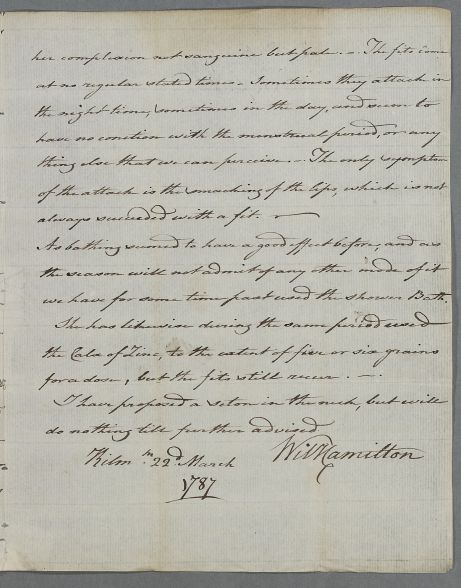 her complexion not sanguine but pale. – The fits come
at no regular stated times. Sometimes they attack in
the night time, sometimes in the day, and seem to
have no conection with the menstrual period, or any
thing else that we can perceive. – The only symptom
of the attack is the smacking of the lips, which is not
always succeeded with a fit. –
As bathing seemed to have a good effect before, and as
the season will not admit of any other mode of it
we have for some time past used the shower Bath.
She has likewise during the same period used
the Calx of Zinc, to the extent of five or six grains
for a dose, but the fits still recur. –.
I have proposed a seton in the neck, but will
do nothing till further advised
Wil Hamilton
Kilm.m 22d March
1787